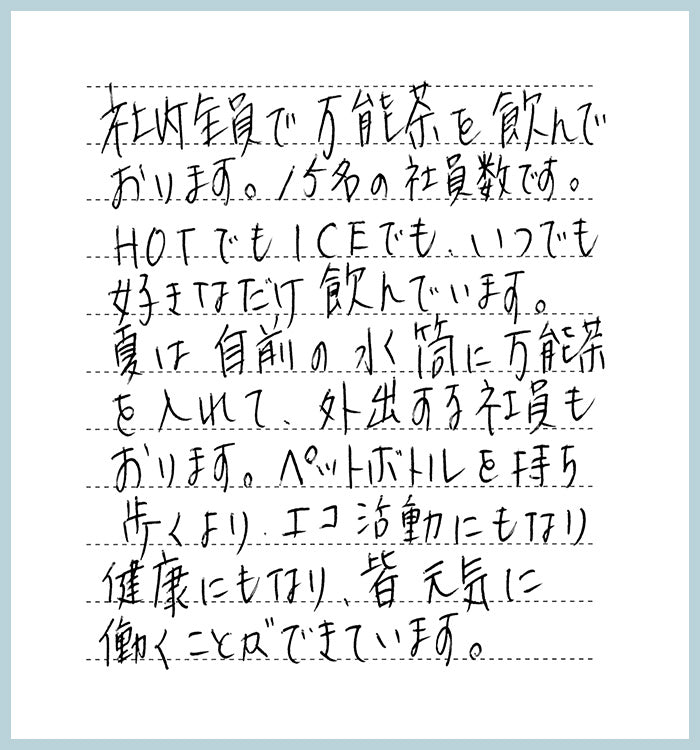 社内全員で万能茶を飲んで
おります。15名の社員数です。
HOTでもICEでも、いつでも
好きなだけ飲んでいます。
夏は自前の水筒に万能茶
を入れて、外出する社員も
おります。ペットボトルを持ち
歩くより、エコ活動にもなり
健康にもなり、皆元気に
働くことができています。